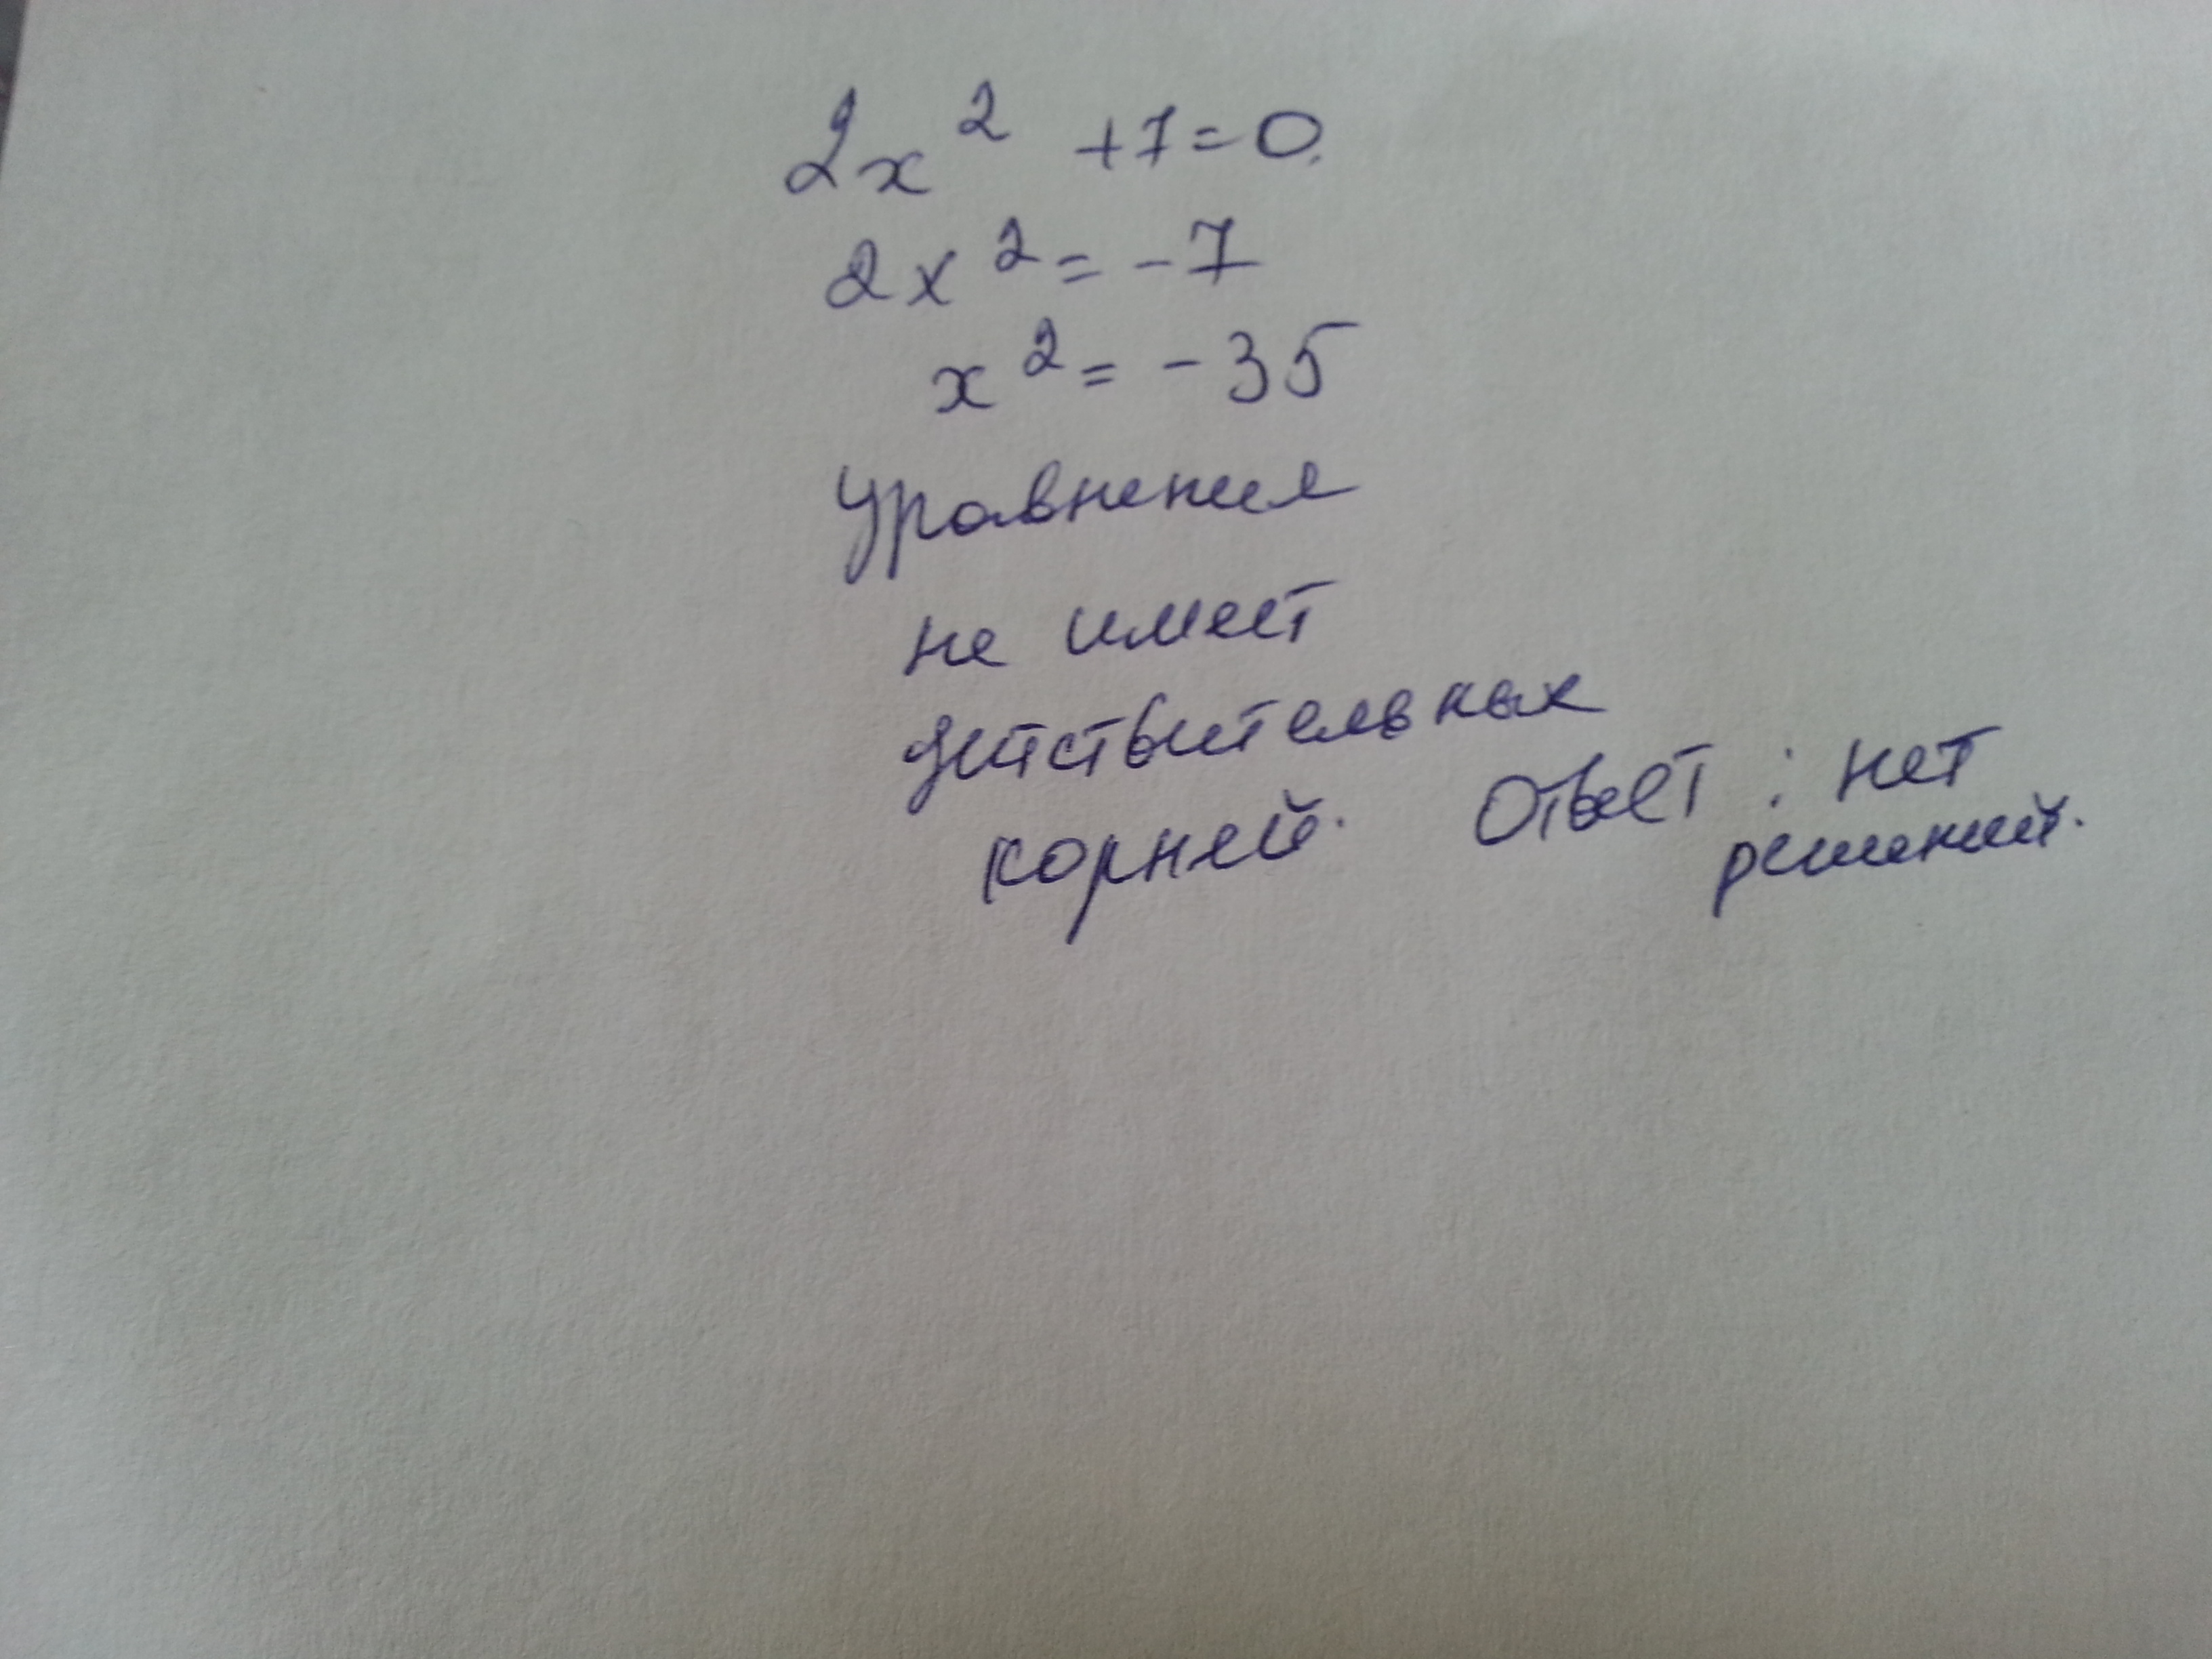 2x² +7=0.
2x²=-7
x²=-35
Уравнение
не имеет
действительных
корней. Ответ: нет
решений.